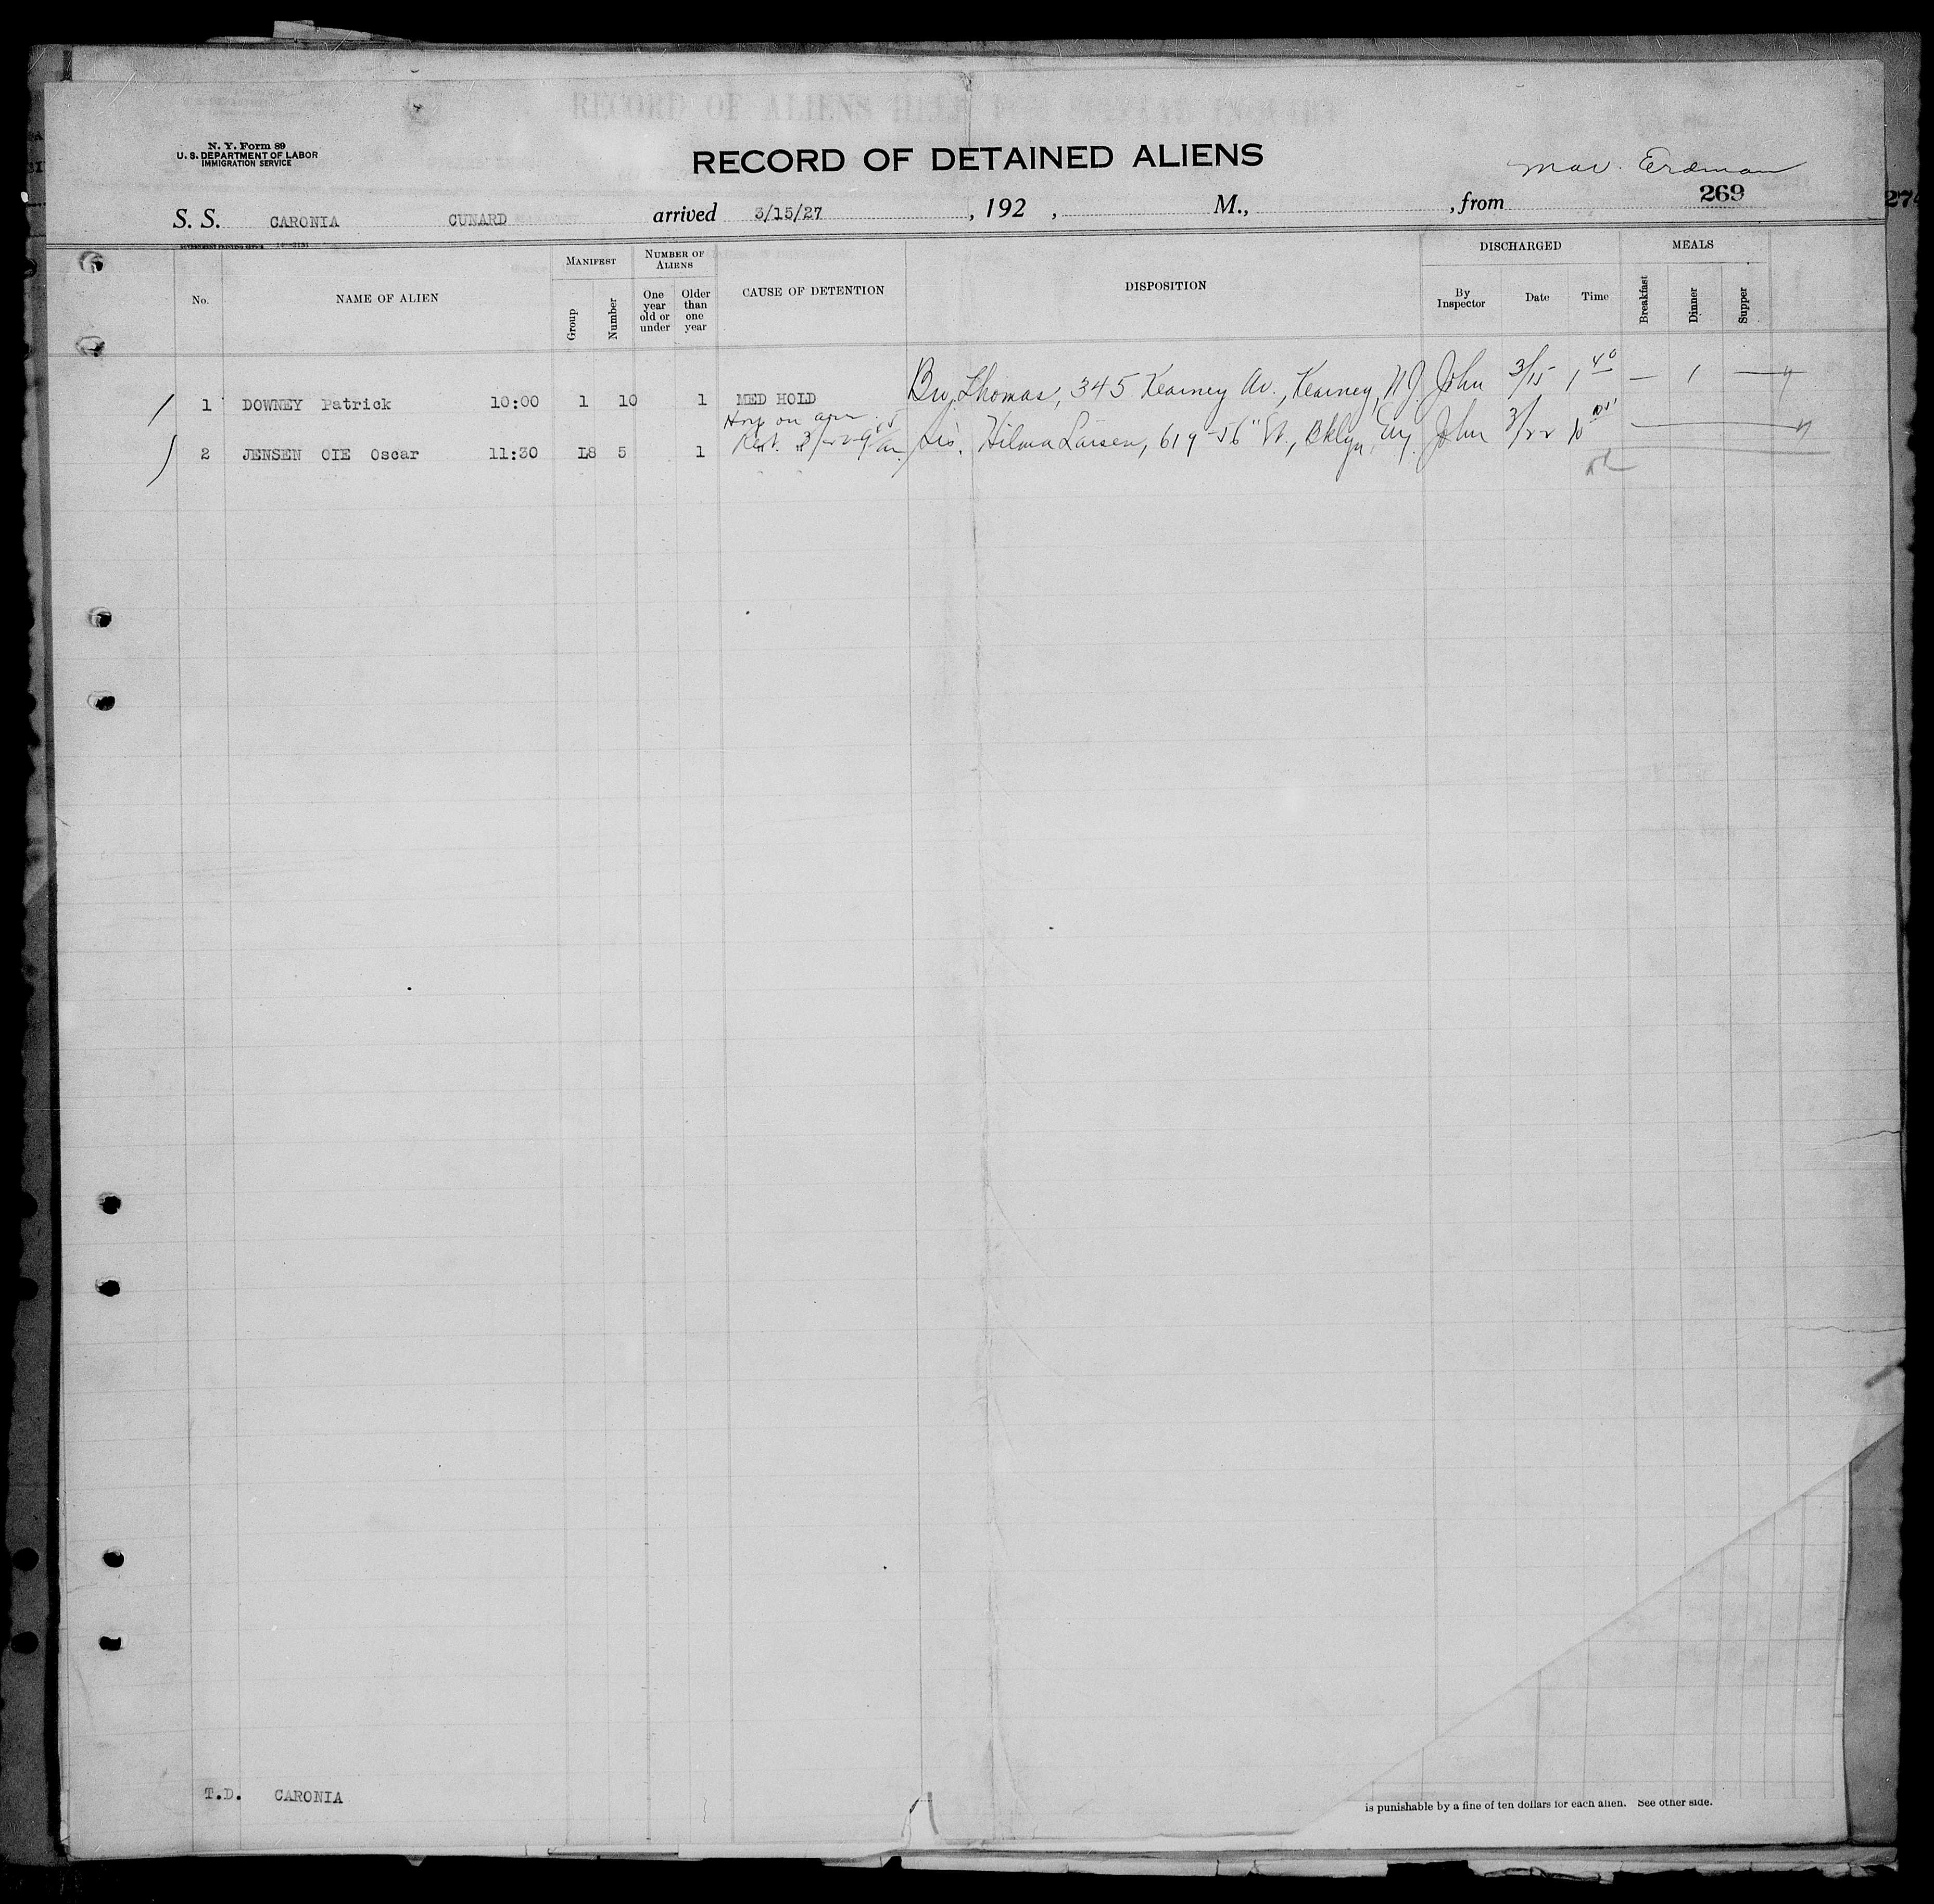 RECORD OF ALIENS HELD FOR SPECIAL INQUIRY
N. Y. Form 89
U. S. DEPARTMENT OF LABOR
IMMIGRATION SERVICE
RECORD OF DETAINED ALIENS
Erdman
269
S. S. CARONIA CUNARD arrived 3/15/27, 192 , M., , from
GOVERNMENT PRINTING OFFICE
No.
NAME OF ALIEN
MANIFEST
Group
Number
NUMBER OF ALIENS
One year old or under
Older than one year
CAUSE OF DETENTION
DISPOSITION
DISCHARGED
By Inspector
Date
Time
MEALS
Breakfast
Dinner
Supper
1 DOWNEY Patrick 10:00 1 10 1 MED HOLD Bro, Thomas, 345 Kearney Av., Kearney, N.J. John 3/15 1 40 — 1 —
Hosp on arr.
2 JENSEN OIE Oscar 11:30 L8 5 1 3/22 sis. Hilma Larsen, 619-56" St., Bklyn, NY. John 3/22 10
T.D. CARONIA
is punishable by a fine of ten dollars for each alien. See other side.